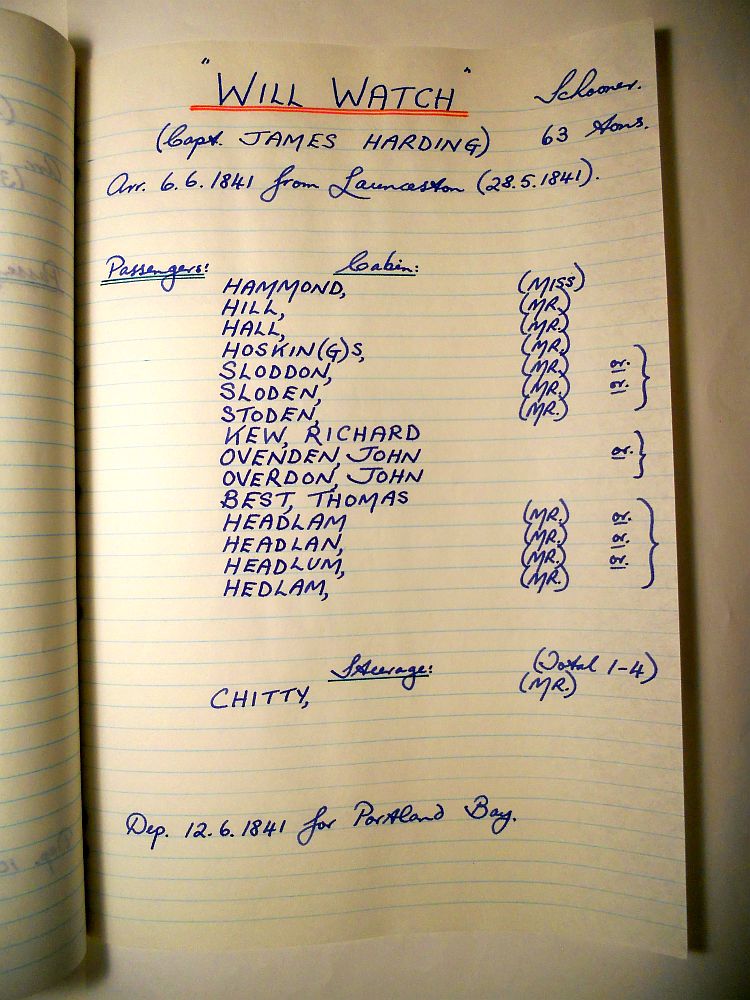 "WILL WATCH" Schooner.
(Capt. JAMES HARDING) 63 Tons.
Arr. 6.6.1841 from Launceston (28.5.1841).
Passengers: Cabin:
HAMMOND, (MISS)
HILL, (MR.)
HALL, (MR.)
HOSKIN(G)S, (MR.)
SLODDON, (MR.) or.
SLODEN, (MR.) or.
STODEN, (MR.)
KEW, RICHARD
OVENDEN, JOHN or.
OVERDON, JOHN
BEST, THOMAS
HEADLAM (MR.) or.
HEADLAN, (MR.) or.
HEADLUM, (MR.) or.
HEDLAM, (MR.)
Steerage: (Total 1-4)
CHITTY, (MR.)
Dep. 12.6.1841 for Portland Bay.